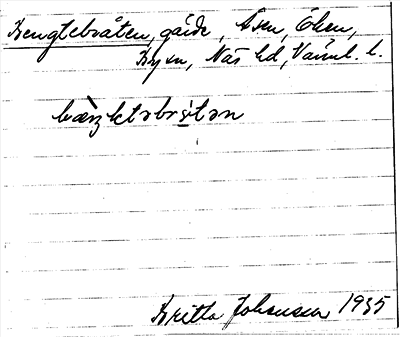 Bengtebråten, gärde, Åsen, Öhen,
By sn, Näs hd, Värml. l.
bæŋktəbrɔ̀tən
Britta Johansson 1935